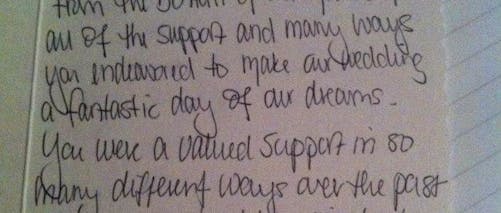 from the bottom of our
all of the support and many ways
you endeavored to make our wedding
a fantastic day of our dreams.
You were a valued support in so
many different ways over the past